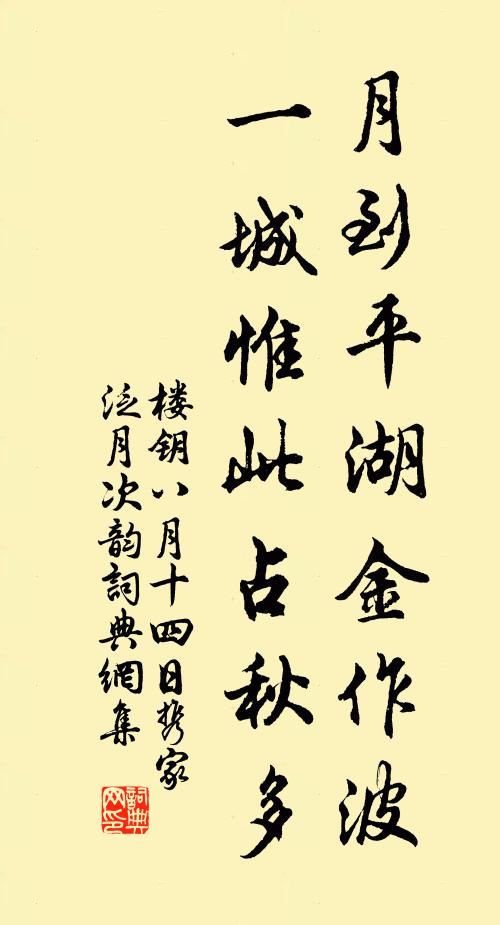 月到平湖金作波
一城惟此占秋多
楼钥八月十四日携家
泛月次韵詞典網集
詞典
网印